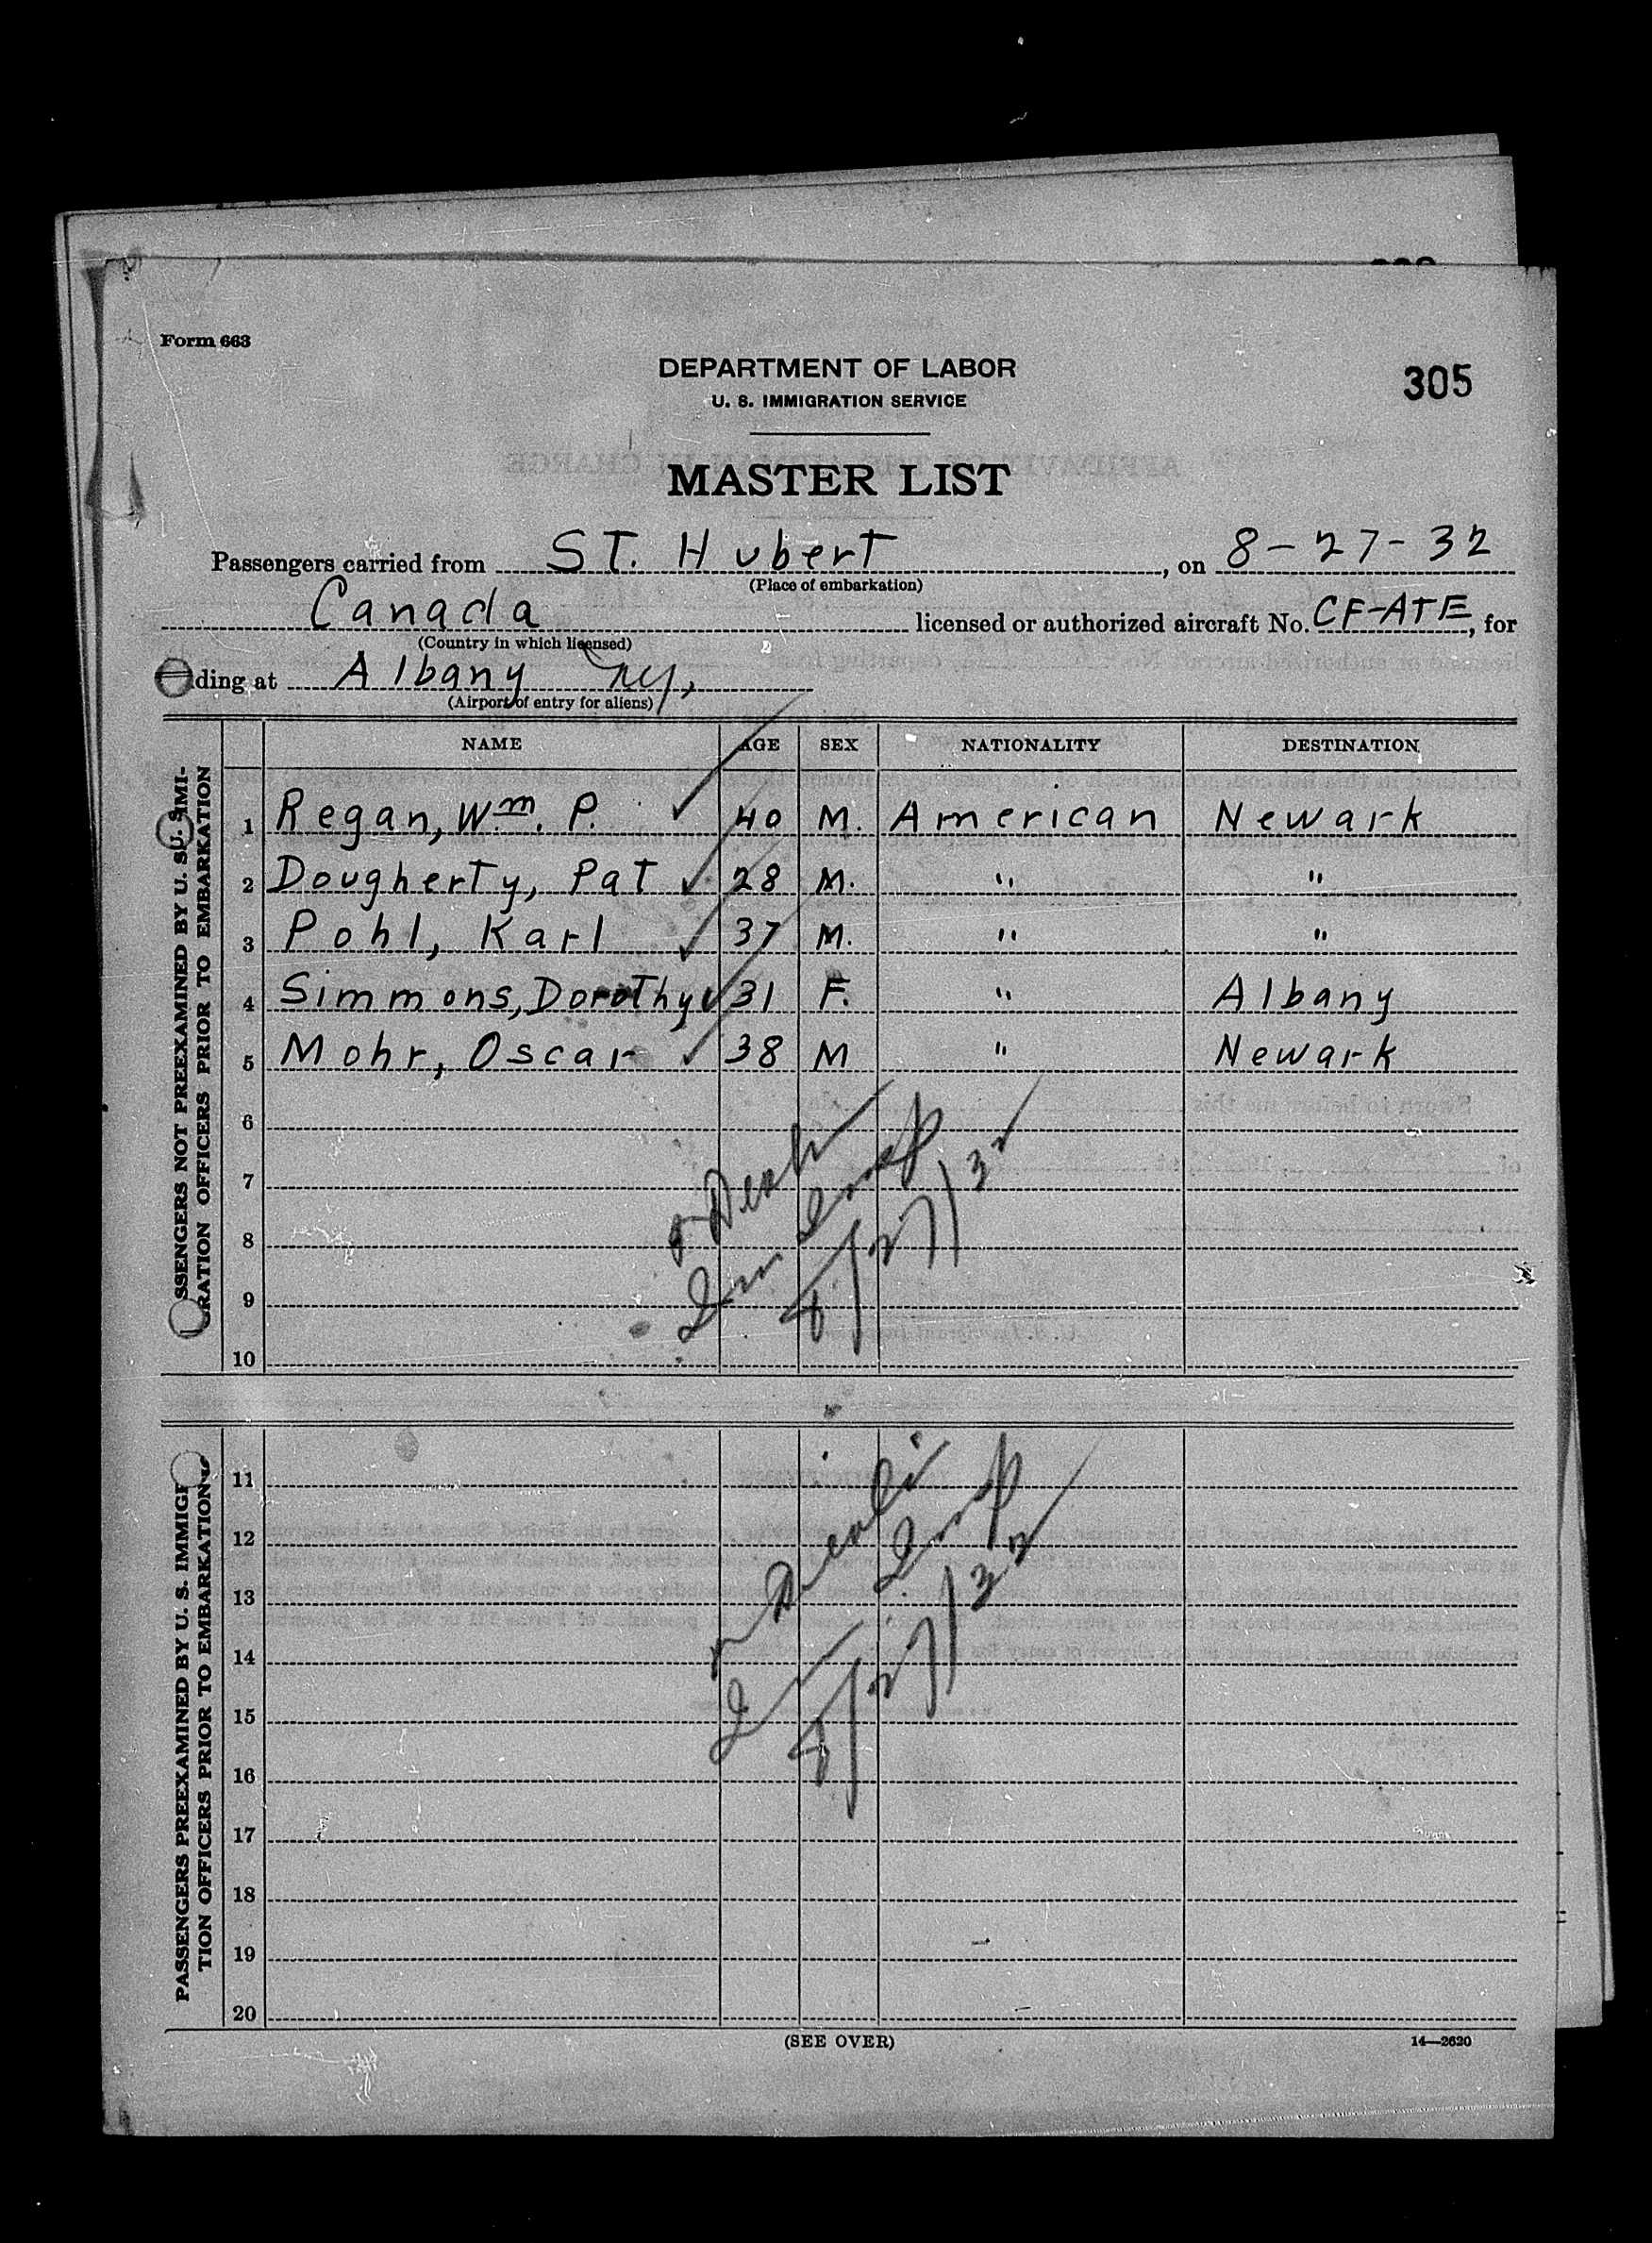 Form 663
DEPARTMENT OF LABOR
305
U. S. IMMIGRATION SERVICE
MASTER LIST
Passengers carried from ST. Hubert, on 8-27-32
(Place of embarkation)
Canada licensed or authorized aircraft No. CF-ATE, for
(Country in which licensed)
ding at Albany NY,
(Airport of entry for aliens)
NAME AGE SEX NATIONALITY DESTINATION
SSENGERS NOT PREEXAMINED BY U. S. IMMI-
RATION OFFICERS PRIOR TO EMBARKATION
1 Regan, Wm. P. ✓ 40 M. American Newark
2 Dougherty, Pat ✓ 28 M. " "
3 Pohl, Karl ✓ 37 M. " "
4 Simmons, Dorothy ✓ 31 F. " Albany
5 Mohr, Oscar ✓ 38 M " Newark
6
7
8
9
10
Imm Insp
8/27/32
PASSENGERS PREEXAMINED BY U. S. IMMIGR
TION OFFICERS PRIOR TO EMBARKATION
11
12
13
14
15
16
17
18
19
20
Imm Insp
8/27/32
(SEE OVER)
14—2620